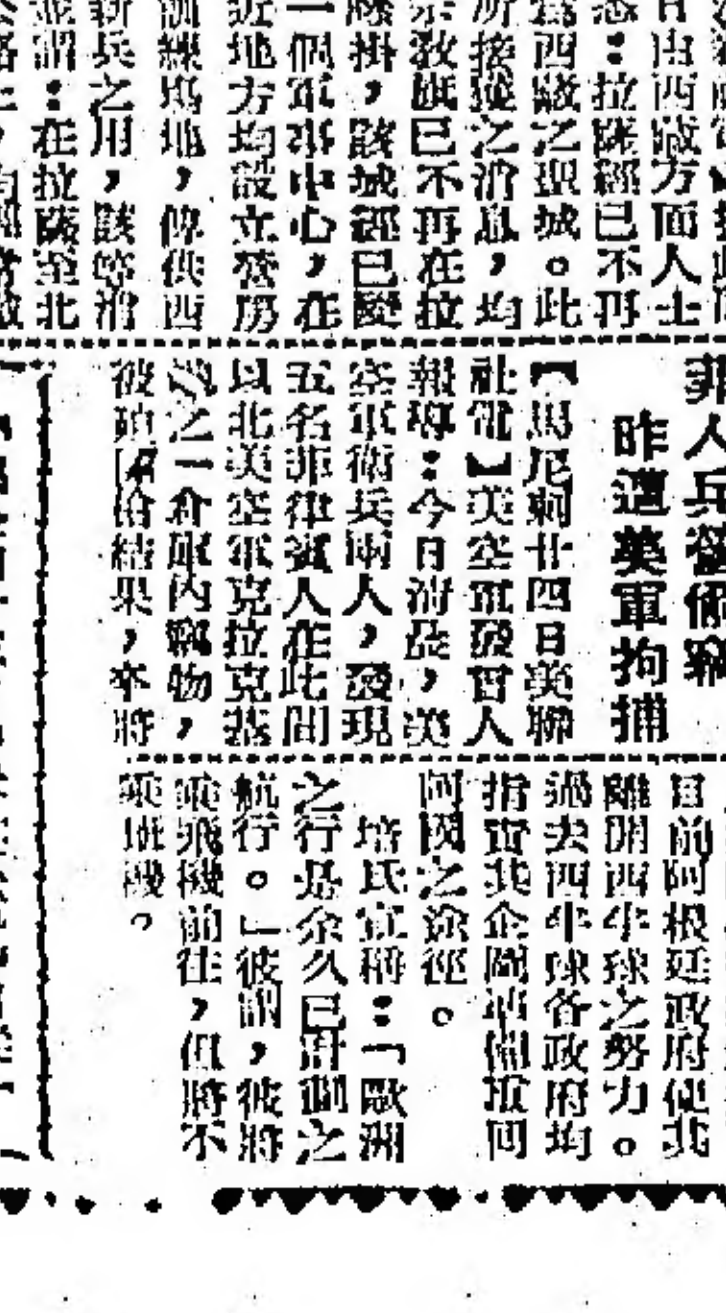 日由西藏方面人士
悉：拉薩經已不再
爲西藏之聖城。此
所接獲之消息，均
宗敎旗已不再在拉
懸掛，該城經已變
一個軍事中心，在
近地方均設立營房
訓練塲地，俾供西
新兵之用，該等消
並謂：在拉薩至北
菲人兵營偷竊
昨遭美軍拘捕
【馬尼剌廿四日美聯
社電】美空軍發言人
報導：今日淸晨，美
空軍衛兵兩人，發現
五名菲律賓人在此間
以北美空軍克拉克基
地之一倉庫內竊物，
被
槍結果，卒將
目前阿根廷政府使其
離開西半球之努力。
過去四年球各政府均
指責其企圖
重回
阿國之途徑。
培氏宣稱：「歐洲
之行是余久已計劃之
航行。」彼謂，彼將
乘飛機前往，但將不
乘班機。